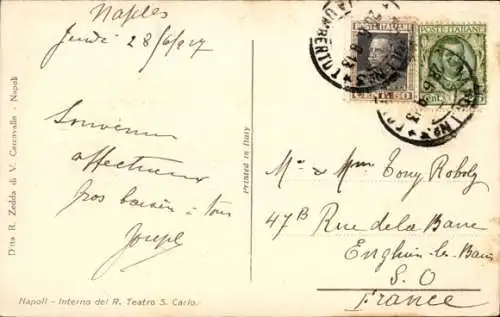 Naples
Jeudi 28/6/27
Souvenir
affectueux
Gros baisers à tous
Joseph
Ditta R. Zedda di V. Carcavallo - Napoli
Printed in Italy
Napoli - Interno del R. Teatro S. Carlo.
POSTE ITALIANE
CENT. 50
POSTE ITALIANE
Cent
Mr & Mme Tony Roboly
47B Rue de la Barre
Enghien-les-Bains
S. O
France